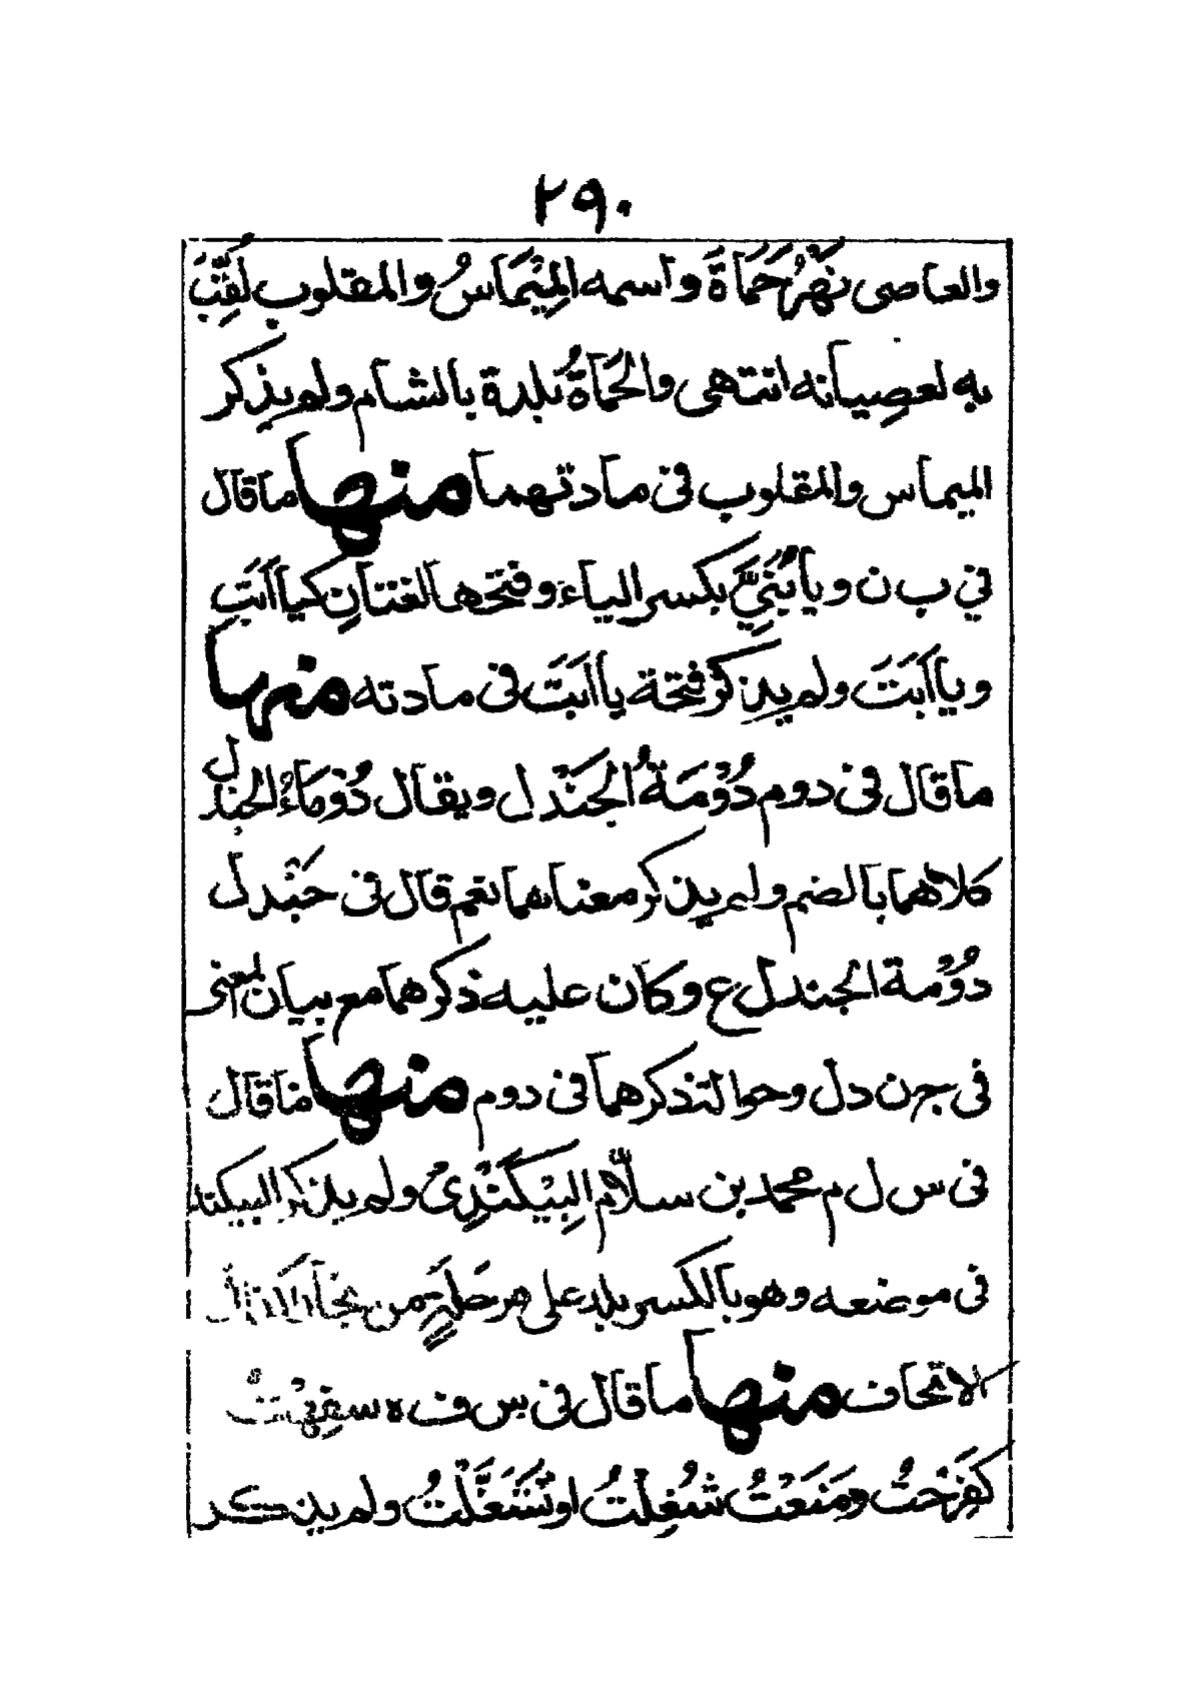 ٢٩٠
والعاصى نَهْرُ حَمَاةَ واسمه المِيْمَاسُ والمقلوب لُقِّبَ
به لعصيانه انتهى والحَمَاةُ بُلدة بالشام ولم يذكر
الميماس والمقلوب فى مادتهما منها ما قال
في ب ن و يا بُنَيِّ بكسر الياء وفتحها لغتان كيا ابَتِ
ويا اَبَتَ ولم يذكر فتحة يا اَبَتَ فى مادته منها
ما قال فى دوم دُوْمَةُ الجَنْدل ويقال دُوْمَاءُ الجندل
كلاهما بالضم ولم يذكر معناهما نعم قال فى جندل
دُوْمة الجندل ع وكان عليه ذكرهما مع بيان المعنى
فى ج ن د ل وحوالة ذكرهما فى دوم منها ما قال
فى س ل م محمد بن سلاّم البِيْكَنْدِىُّ ولم يذكر البيكند
فى موضعه وهو بالكسر بلد على مرحلةٍ من بخارا كذا قال
الاتحاف منها ما قال فى س ف ه سفِهْتُ
كفَرِحْتُ ومَنَعْتُ شُغِلْتُ او تَشَغَّلْتُ ولم يذكر